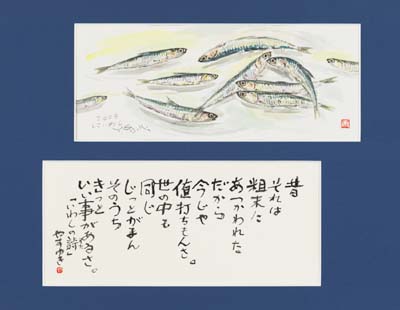 昔
それは
粗末に
あつかわれた
だから
今じゃ
値打ちもんさ。
世の中も
同じ
じっとがまん
そのうち
きっと
いい事があるさ。
「いわしの詩」
やすゆき